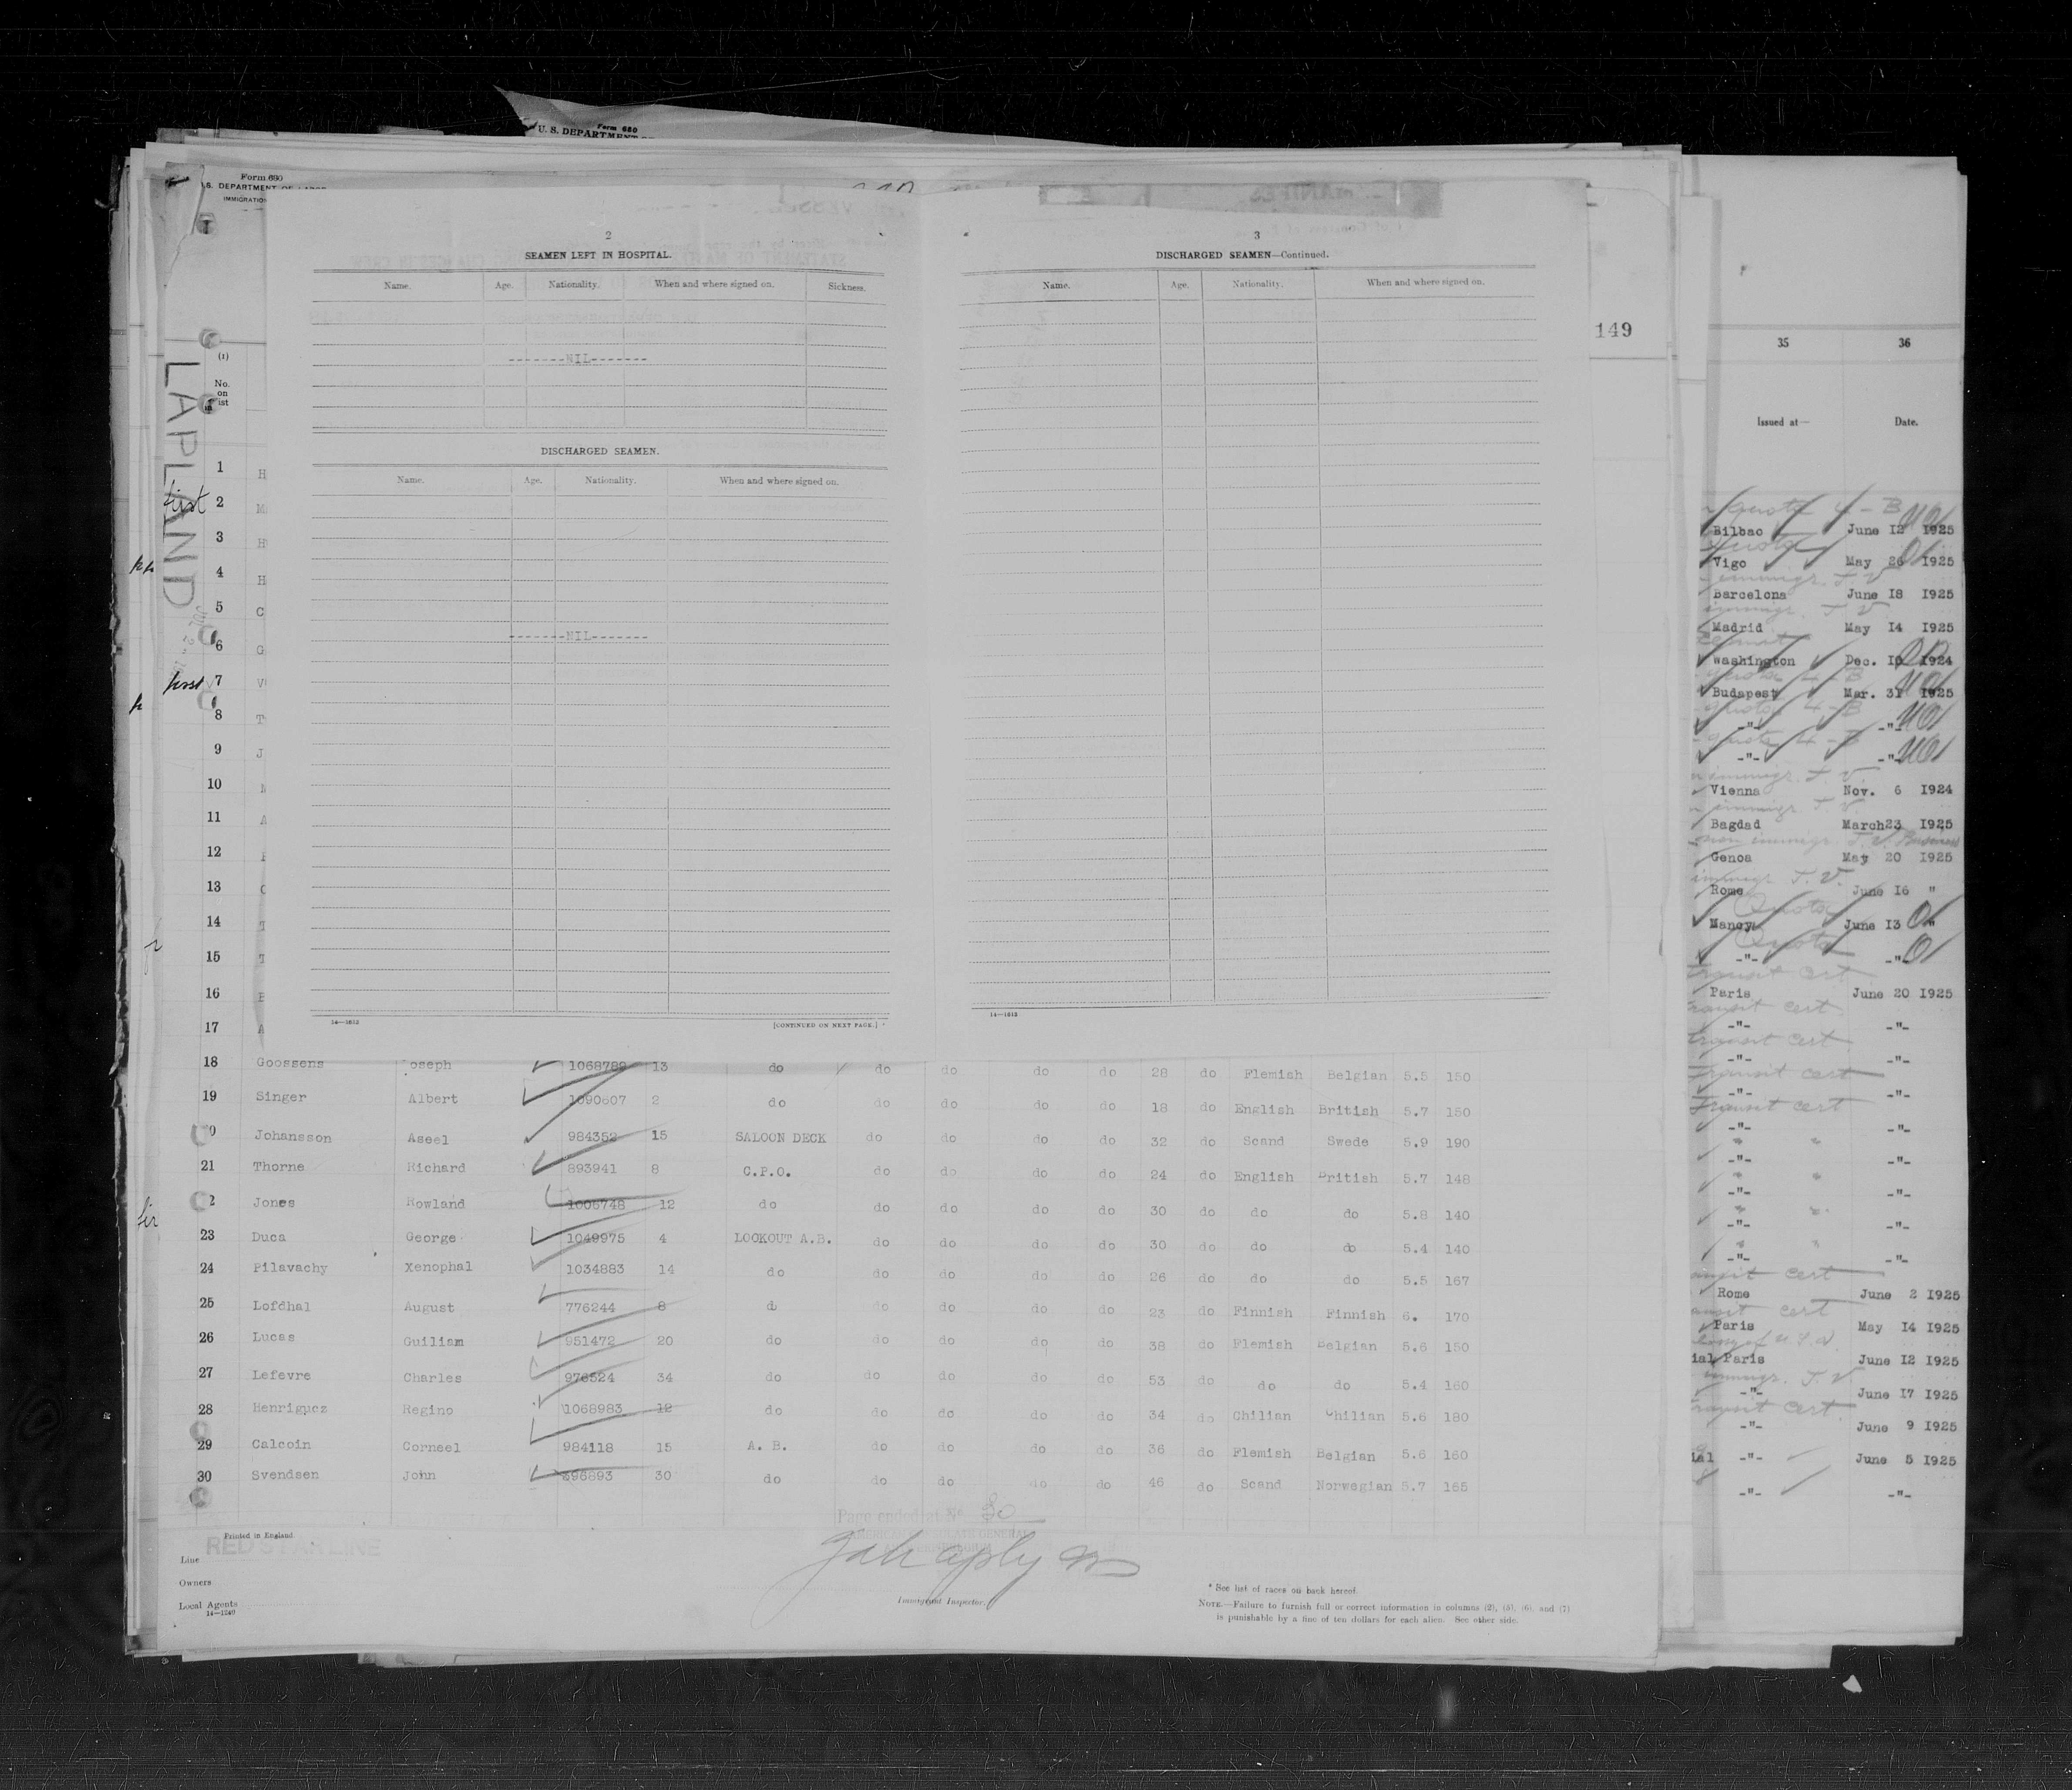 Form 680
U. S. DEPARTMENT
Form 680
S. DEPARTMENT OF LABOR
IMMIGRATION
LAPLAND
(1)
No.
on
ist
149
2
SEAMEN LEFT IN HOSPITAL.
Name. Age. Nationality. When and where signed on. Sickness.
-------NIL-------
DISCHARGED SEAMEN.
Name. Age. Nationality. When and where signed on.
-------NIL-------
14—1613
[CONTINUED ON NEXT PAGE.]
3
DISCHARGED SEAMEN—Continued.
Name. Age. Nationality. When and where signed on.
14—1613
1 H
first 2 M
3 H
4 H
5 C
6 G
first 7 V
8 T
9 J
10
11 A
12
13
14 T
15 T
16
17 A
18 Goossens oseph 1068789 13 do do do do do 28 do Flemish Belgian 5.5 150
19 Singer Albert 1090607 2 do do do do do 18 do English British 5.7 150
0 Johansson Aseel 984352 15 SALOON DECK do do do do 32 do Scand Swede 5.9 190
21 Thorne Richard 893941 8 C.P.O. do do do do 24 do English British 5.7 148
2 Jones Rowland 1006748 12 do do do do do 30 do do do 5.8 140
23 Duca George 1049975 4 LOOKOUT A.B. do do do do 30 do do do 5.4 140
24 Pilavachy Xenophal 1034883 14 do do do do do 26 do do do 5.5 167
25 Lofdhal August 776244 8 do do do do do 23 do Finnish Finnish 6. 170
26 Lucas Guiliam 951472 20 do do do do do 38 do Flemish Belgian 5.6 150
27 Lefevre Charles 976524 34 do do do do do 53 do do do 5.4 160
28 Henriguez Regino 1068983 12 do do do do do 34 do Chilian Chilian 5.6 180
29 Calcoin Corneel 984118 15 A. B. do do do do 36 do Flemish Belgian 5.6 160
30 Svendsen John 396893 30 do do do do do 46 do Scand Norwegian 5.7 165
Page ended at No 30
Printed in England
RED STAR LINE
Line
Owners
Local Agents
14—1240
Immigrant Inspector.
* See list of races on back hereof.
NOTE.—Failure to furnish full or correct information in columns (2), (5), (6), and (7)
is punishable by a fine of ten dollars for each alien. See other side.
35 36
Issued at— Date.
Quota 4-B
Bilbao June 12 1925
Quota
Vigo May 26 1925
immigr. T.V.
Barcelona June 18 1925
immigr. T.V.
Madrid May 14 1925
Washington Dec. 10 1924
Quota 4-B
Budapest Mar. 31 1925
Quota 4-B
-"- -"-
Quota 4-B
-"- -"-
immigr. T.V.
Vienna Nov. 6 1924
immigr. T.V.
Bagdad March 23 1925
non immigr. T.V. Business
Genoa May 20 1925
immigr T.V.
Rome June 16 "
Quota
Nancy June 13 "
Quota
-"- -"-
Transit Cert
Paris June 20 1925
Transit Cert
-"- -"-
Transit Cert
-"- -"-
Transit Cert
-"- -"-
Transit Cert
-"- -"-
" "
-"- -"-
" "
-"- -"-
" "
-"- -"-
" "
-"- -"-
ansit Cert
Rome June 2 1925
ansit Cert
Paris May 14 1925
ial Paris June 12 1925
immigr. T.V.
-"- June 17 1925
ransit Cert
-"- June 9 1925
ial -"- June 5 1925
-"- -"-